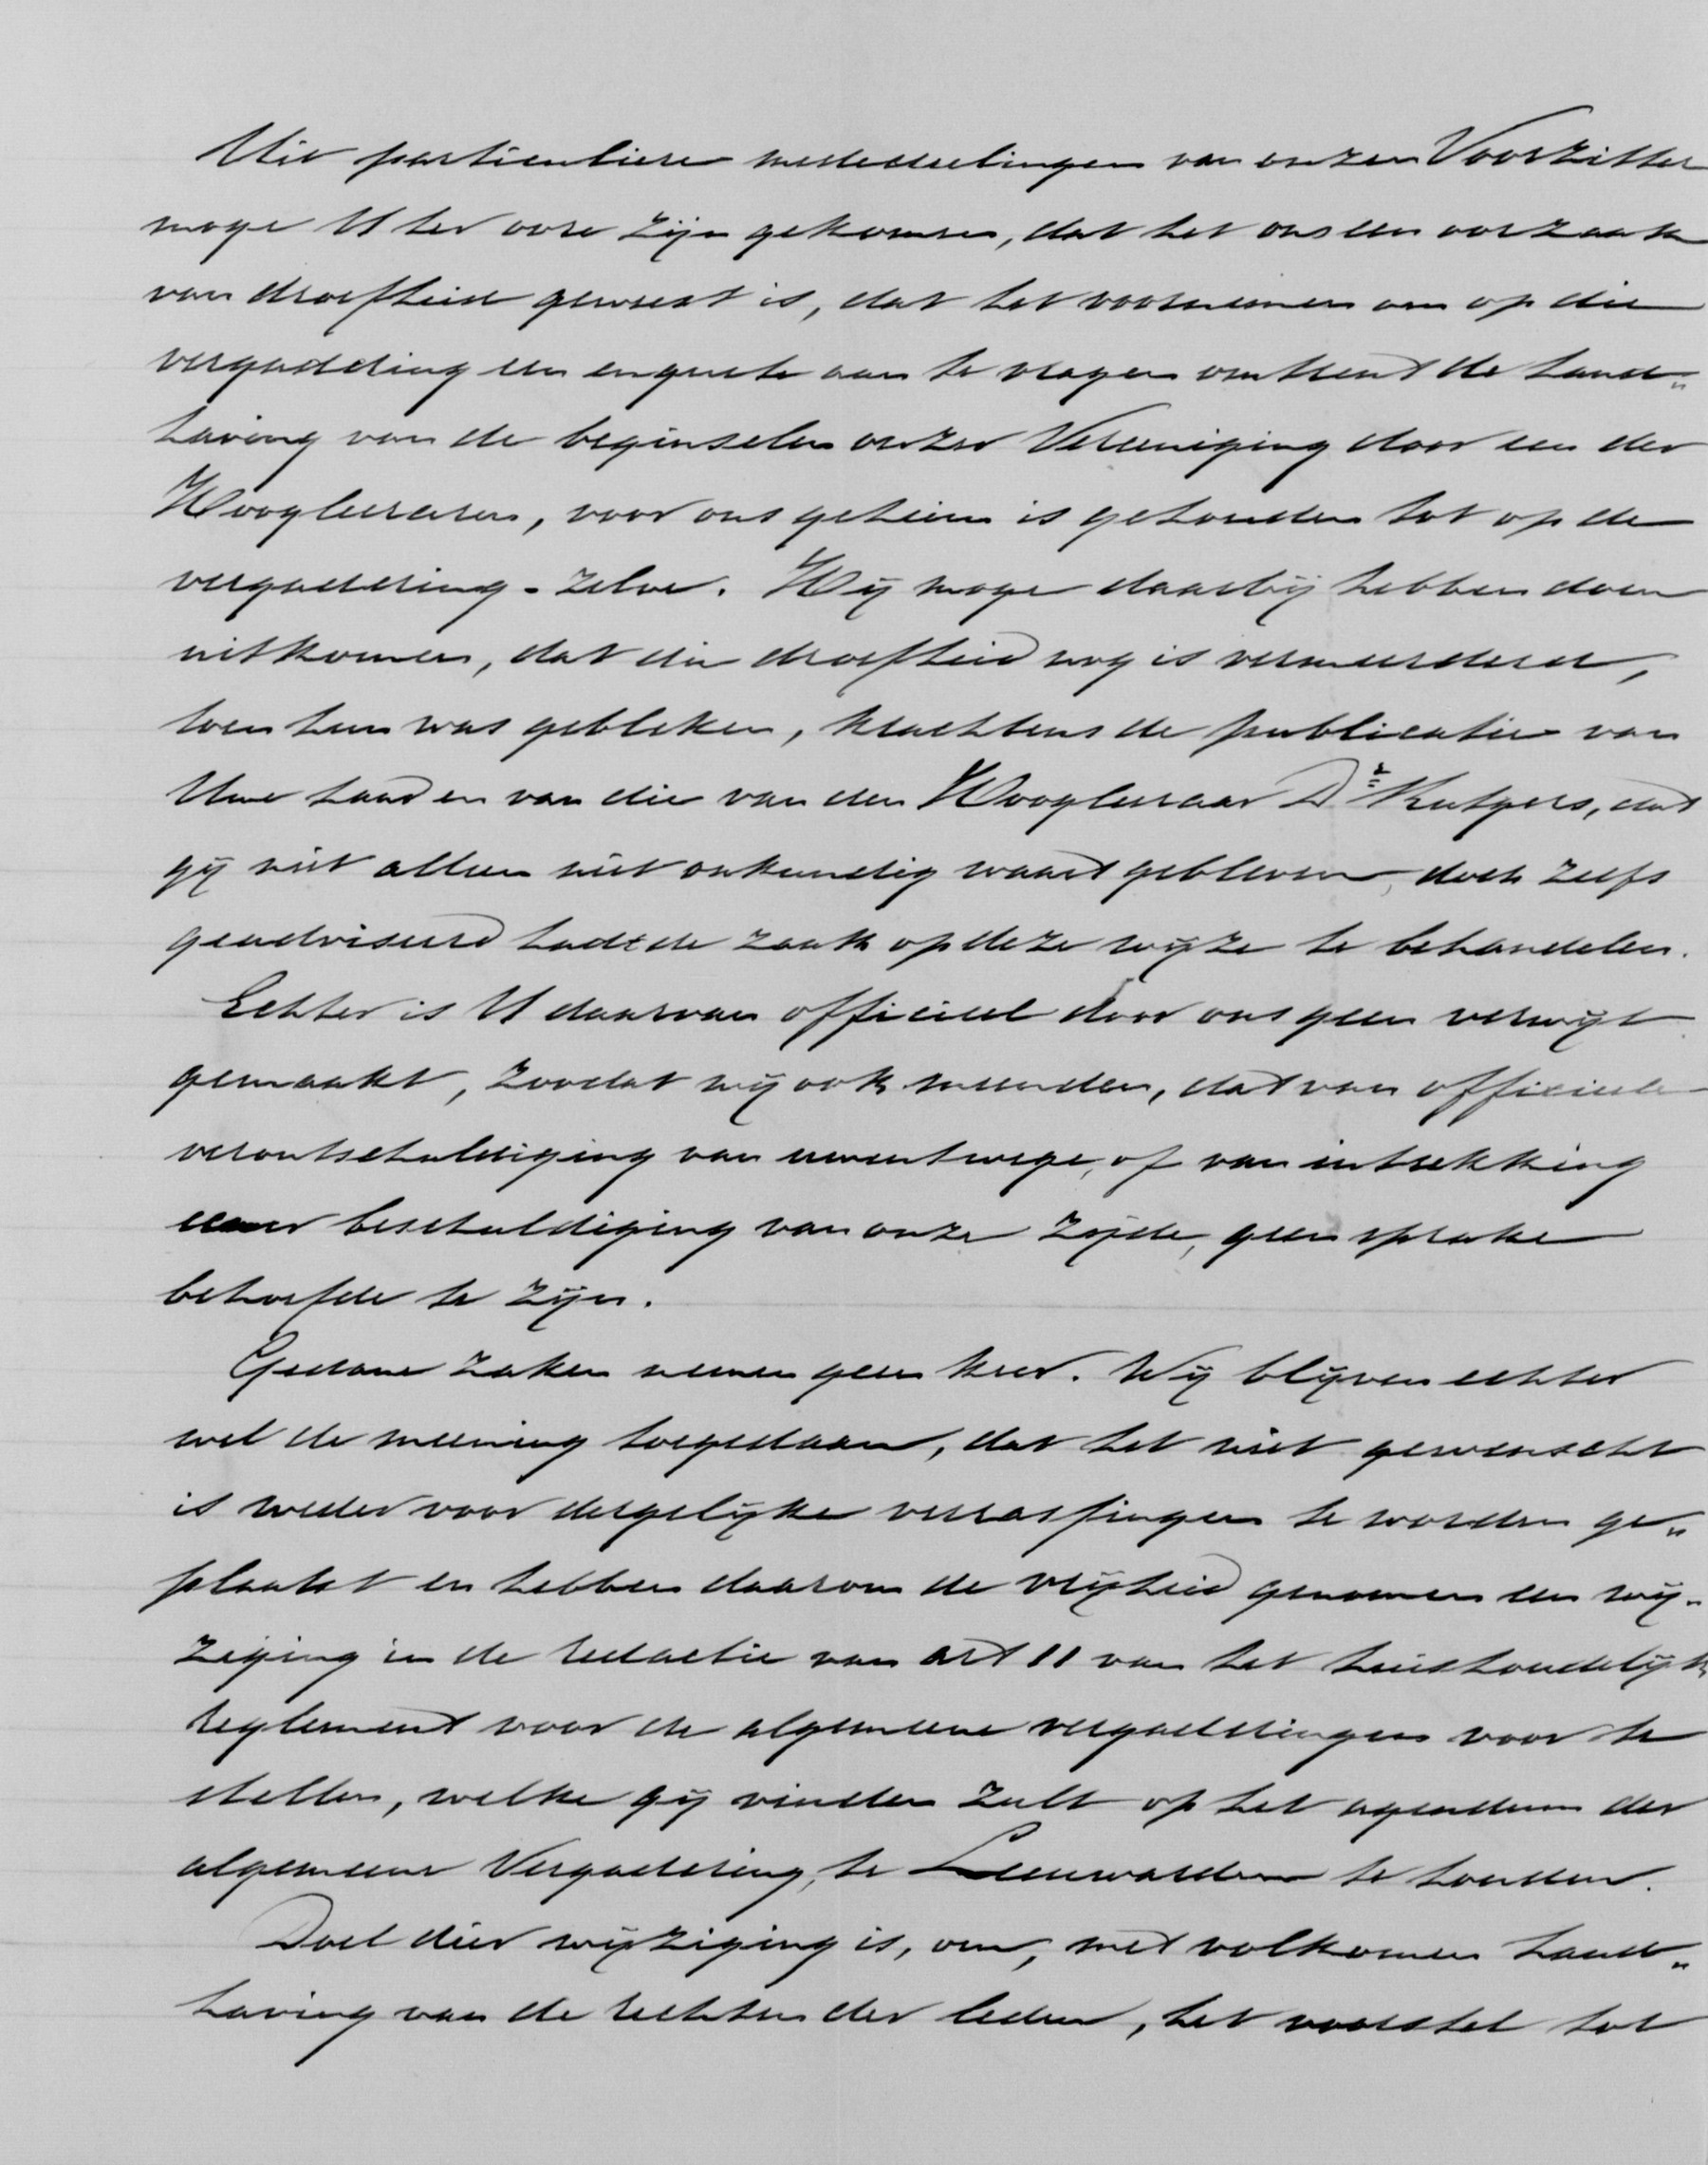 Uit particuliere mededeelingen van onzen Voorzitter
moge U ter oore zijn gekomen, dat het ons een oorzaak
van droefheid geweest is, dat het voornemen om op die
vergadering een enquete aan te vragen omtrent de hand„
having van de beginselen onzer Vereeniging door een der
Hoogleeraren, voor ons geheim is gehouden tot op de
vergadering-zelve. Hij moge daarbij hebben doen
uitkomen, dat die droefheid nog is vermeerderd,
toen hem was gebleken, krachtens de publicatie van
Uwe hand en van die van den Hoogleeraar Dr Rutgers, dat
gij niet alleen niet onkundig waart gebleven, doch zelfs
geadviseerd hadt de zaak op deze wijze te behandelen.
Echter is U daarvan officieel door ons geen verwijt
gemaakt, zoodat wij ook meenden, dat van officieele
verontschuldiging van uwentwege, of van intrekking
eener beschuldiging van onze zijde, geen sprake
behoefde te zijn.
Gedane zaken nemen geen keer. Wij blijven echter
wel de meening toegedaan, dat het niet gewenscht
is weder voor dergelijke verrassingen te worden ge„
plaatst en hebben daarom de vrijheid genomen een wij„
ziging in de redactie van art 11 van het huishoudelijk
reglement voor de algemeene vergaderingen voor te
stellen, welke gij vinden zult op het agendum der
algemeene Vergadering, te Leeuwarden te houden.
Doel dier wijziging is, om, met volkomen hand„
having van de rechten der leden, het voorstel tot